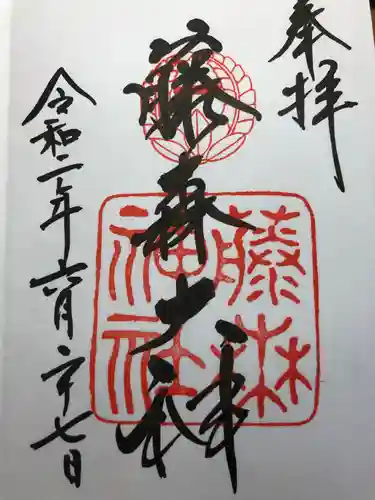 奉拝
藤森大神
藤森神社
令和二年六月二十七日